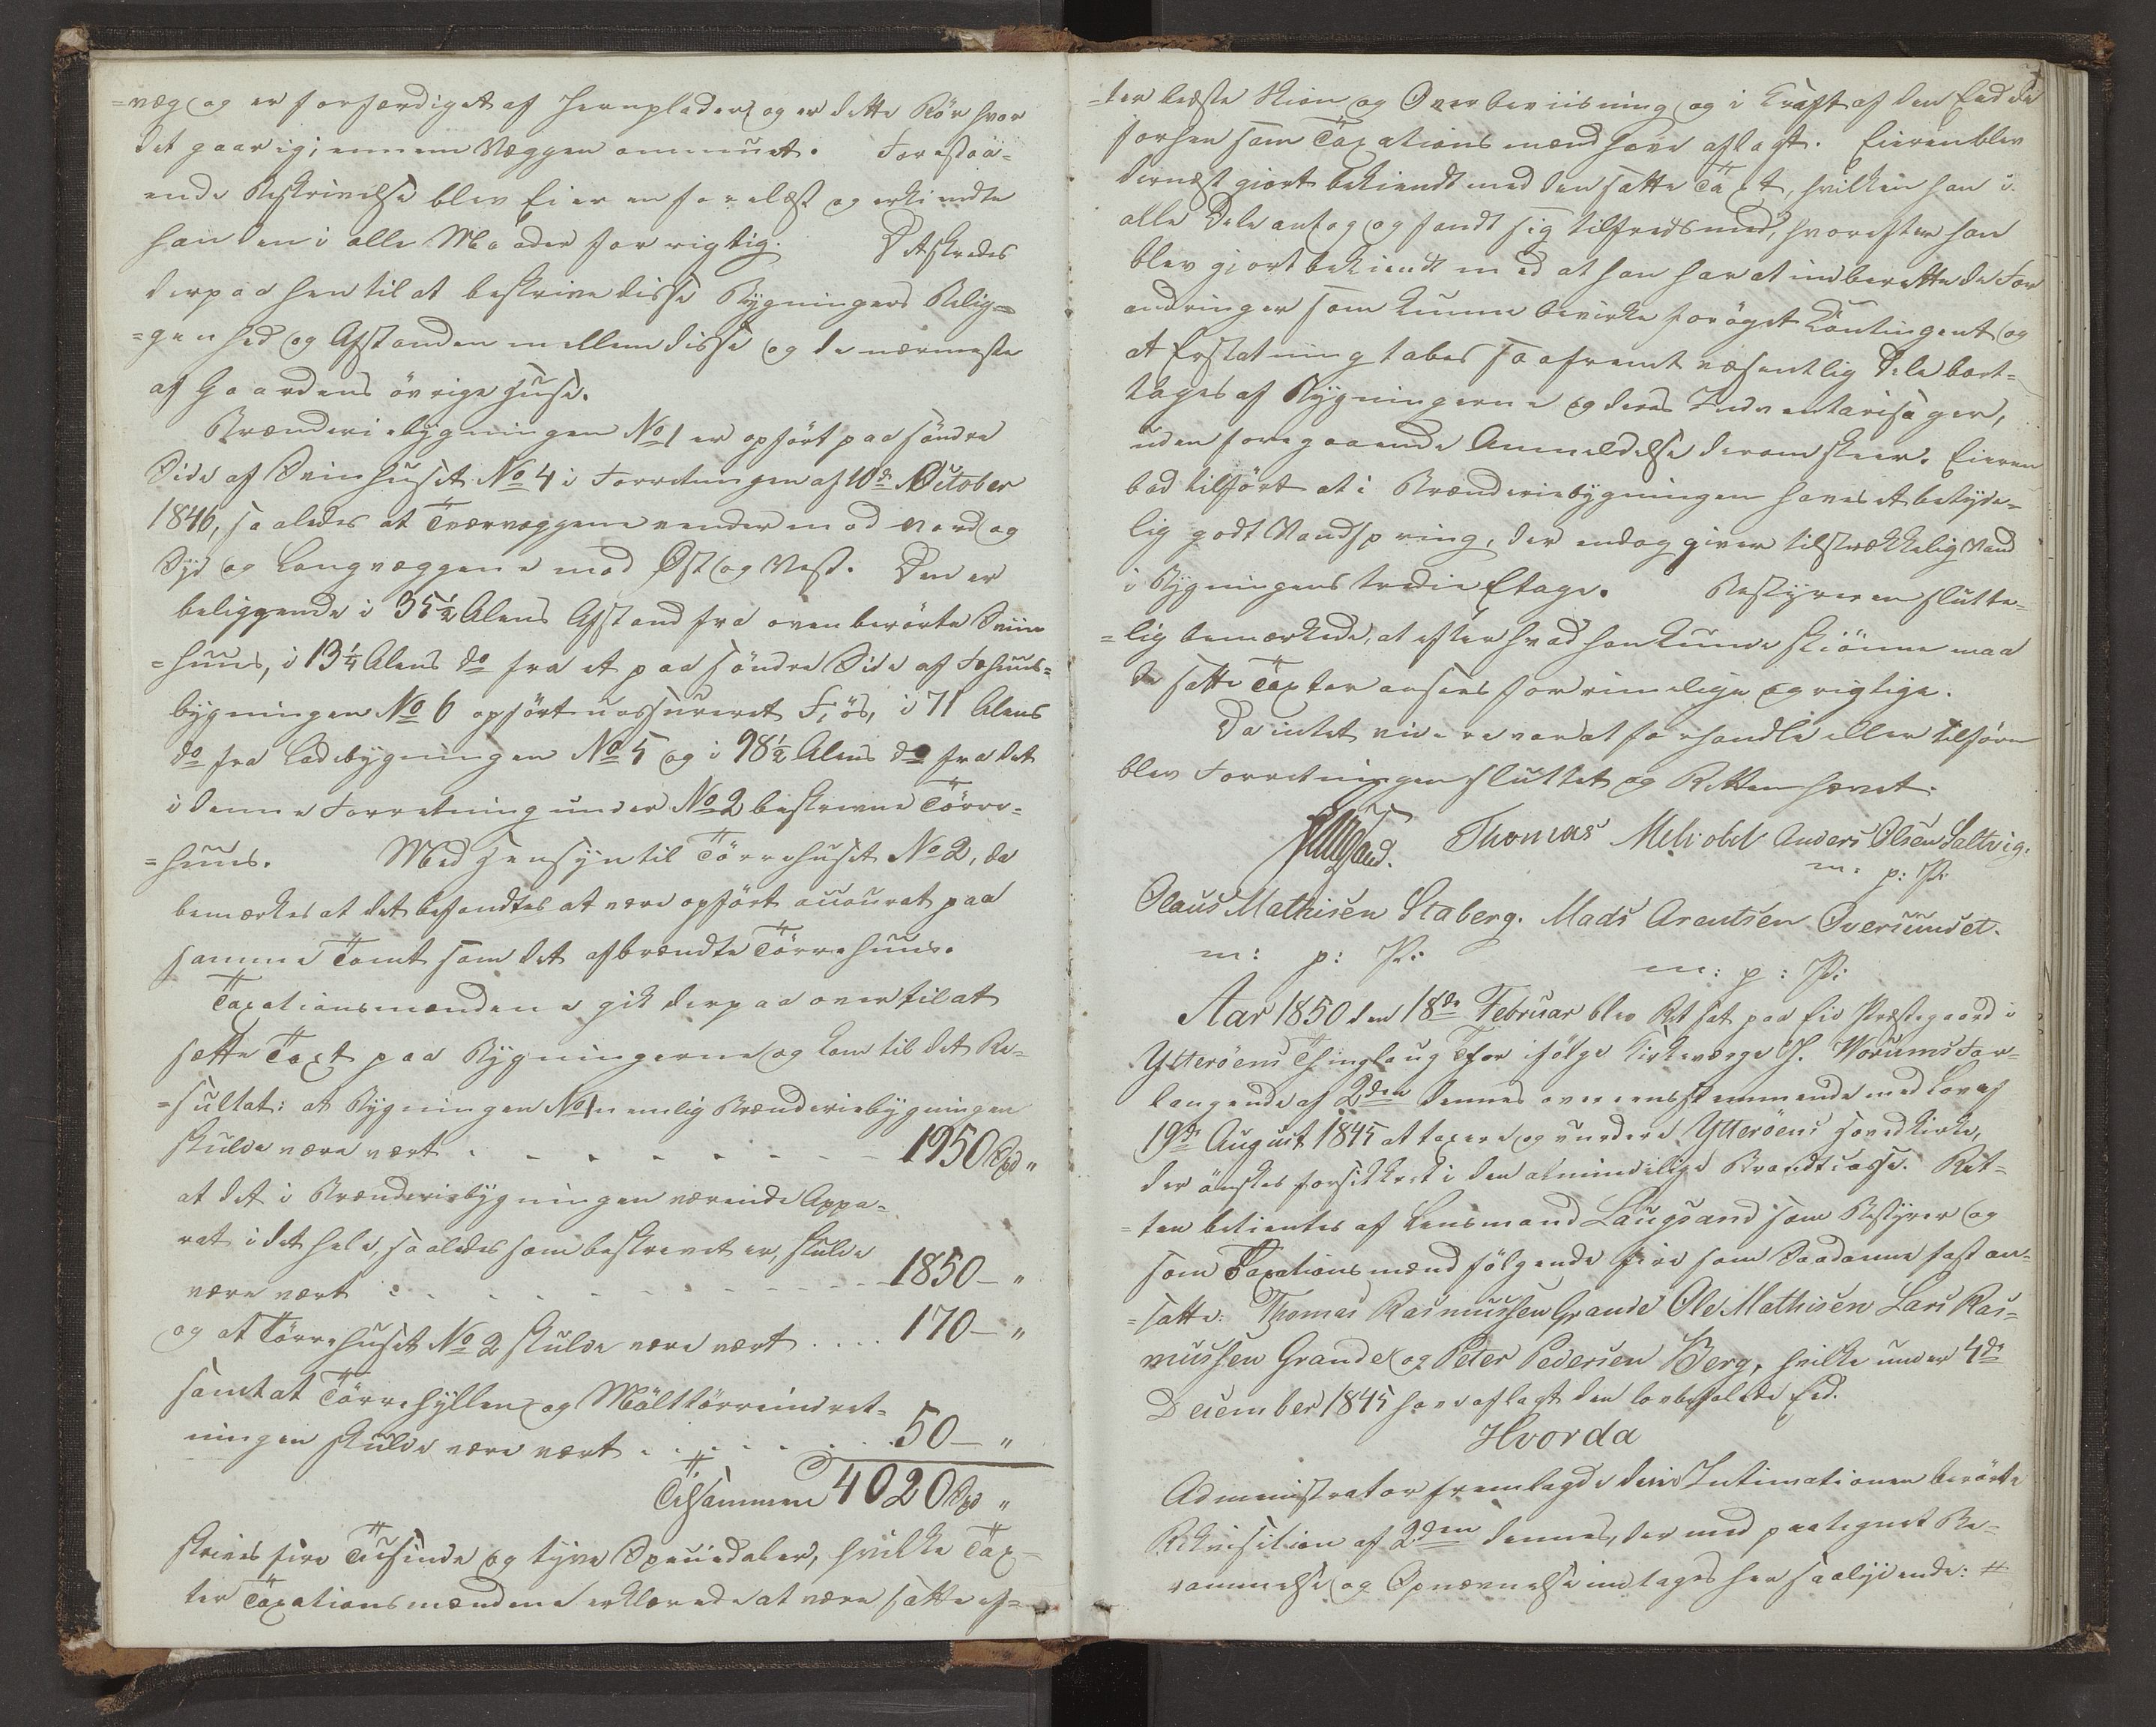 =væg og er forfærdiget af Jernplader og er dette Rör hvor
det gaar igiennem Væggen ommuret. Forestaa-
ende Beskrivelse blev Eieren forelæst og erkiendte
han den i alle Maader for rigtig. Det skredes
derpaa hen til at beskrive disse Bygningers Belig=
=genhed og Afstanden mellem disse og de nærmeste
af Gaardens övrige Huse.
Brænderiebygningen No 1 er opfört paa söndre
Side af Svinhuset No 4 i Forretningen af 10de October
1846, saaledes at Tværvæggene vender mod Nord og
Syd og Langvæggene mod Øst og Vest. Den er
beliggende i 35½ Alens Afstand fra ovenberörte Sviin
=huus, i 13¼ Alens do fra et paa söndre Side af Fæhuus-
bygningen No 6 opfört uassureret Fiös, i 71 Alens
do fra Ladebygningen No 5 og i 98½ Alens do fra det
i denne Forretning under No 2 beskrevne Törre-
=huus. Med Hensyn til Törrehuset No 2, da
bemærkes at det befandtes at være opfört accurat paa
samme Tomt som det afbrændte Törrehuus.
Taxationsmændene gik derpaa over til at
sætte Taxt paa Bygningerne og kom til det Re-
=sultat: at Bygningen No 1 nemlig Brænderiebygningen
skulde være vært . - - - - - - - 1950 Spd "
at det i Brænderiebygningen værende Appa-
rat i det hele, saaledes som beskrevet er, skulde
være vært . . - - - - - - - 1850 - "
og at Törrehuset No 2 skulde være vært . . . . 170 - "
samt at Törrehyllen og Maltkörreindret-
ningen skulde være vært . . . . . . 50 - "
Tilsammen 4020 Spd "
skrives fire Tusinde og tyve Speciedaler, hvilke Tax-
ter Taxationsmændene erklærede at være satte ef-
=ter bedste Skiön og Overbeviisning og i Kraft af den Eed de
forhen som Taxationsmænd have aflagt. Eieren blev
dernæst giort bekiendt med den satte Taxt, hvilken han i
alle Dele antog og fandt sig tilfreds med, hvorefter han
blev giort bekiendt med at han har at indberette de For
andringer som kunne bevirke foröget Contingent og
at Erstatning tabes saafremt væsentlig Dele bort-
tages af Bygningerne og deres Indventarisager,
uden foregaaende Anmeldelse derom skeer. Eieren
bad tilfört at i Brænderiebygningen haves et betyde-
lig godt Vandspring, der endog giver tilstrækkelig Vand
i Bygningens tredie Etage. Bestyreren slutte-
=lig bemærkede, at efter hvad han kunde skiönne maa
de satte Taxter ansees for rimelige og rigtige.
Da intet videre var at forhandle eller tilföre
blev Forretningen sluttet og Retten hævet.
Thomas Anders Olsen Saltvig.
m: p: P:
Olaus Mathisen Staberg. Mads Arentsen Oversundet.
m: p: P: m: p: P:
Aar 1850 den 18de Februar blev Ret sat paa Eid Præstegaard i
Ytteröens Thinglaug for ifölge Kirkeværge H. Worums For-
langende af 2den dennes overeensstemmende med Lov af
19de August 1845 at taxere og vurdere Ytteröens Hovedkirke,
der önskes forsikkret i den almindelige Brandcasse. Ret-
=ten betientes af Lensmand Laugsand som Bestyrer og
som Taxationsmænd fölgende fire som Saadanne fast an-
=satte: Thomas Rasmussen Grande Ole Mathisen Lars Ras-
mussen Grande og Peter Pedersen Berg, hvilke under 4de
December 1845 have aflagt den lovbefalede Eed.
Hvorda
Administrator fremlagde den i Intimationen berörte
Rekvisition af 2den dennes, der med paategnet Be-
rammelse og Opnævnelse indtages her saalydende: #